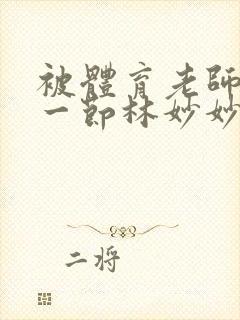 被體育老師
一節林妙妙
二将